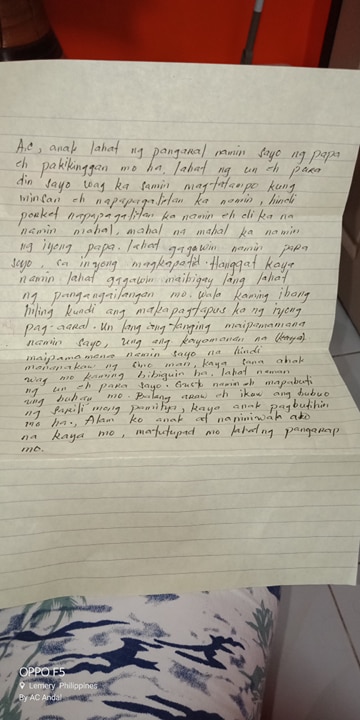 A.C, anak lahat ng pangaral namin sayo ng papa
eh pakikinggan mo ha, lahat ng un eh para
din sayo wag ka samin magtatampo kung
minsan eh napapagalitan ka namin, hindi
porket napapagalitan ka namin eh di ka na
namin mahal, mahal na mahal ka namin
ng iyong papa. lahat gagawin namin para
sayo, sa inyong magkapatid. Hanggat kaya
namin lahat gagawin maibigay lang lahat
ng pangangailangan mo. wala kaming ibang
hiling kundi ang makapagtapus ka ng iyong
pag-aaral. Un lang ang tanging maipamamana
namin sayo, ung ang kayamanan na (kaya)
maipamamana namin sayo na hindi
mananakaw ng sino man, kaya sana anak
wag mo kaming bibiguin ha, lahat naman
ng un eh para sayo. Gusto namin eh mapabuti
ang buhay mo. Balang araw eh ikaw ang bubuo
ng sarili mong pamilya, kaya anak pagbutihin
mo ha., Alam ko anak at naniniwala ako
na kaya mo, matutupad mo lahat ng pangarap
mo.
OPPO F5
Lemery, Philippines
By AC Andal